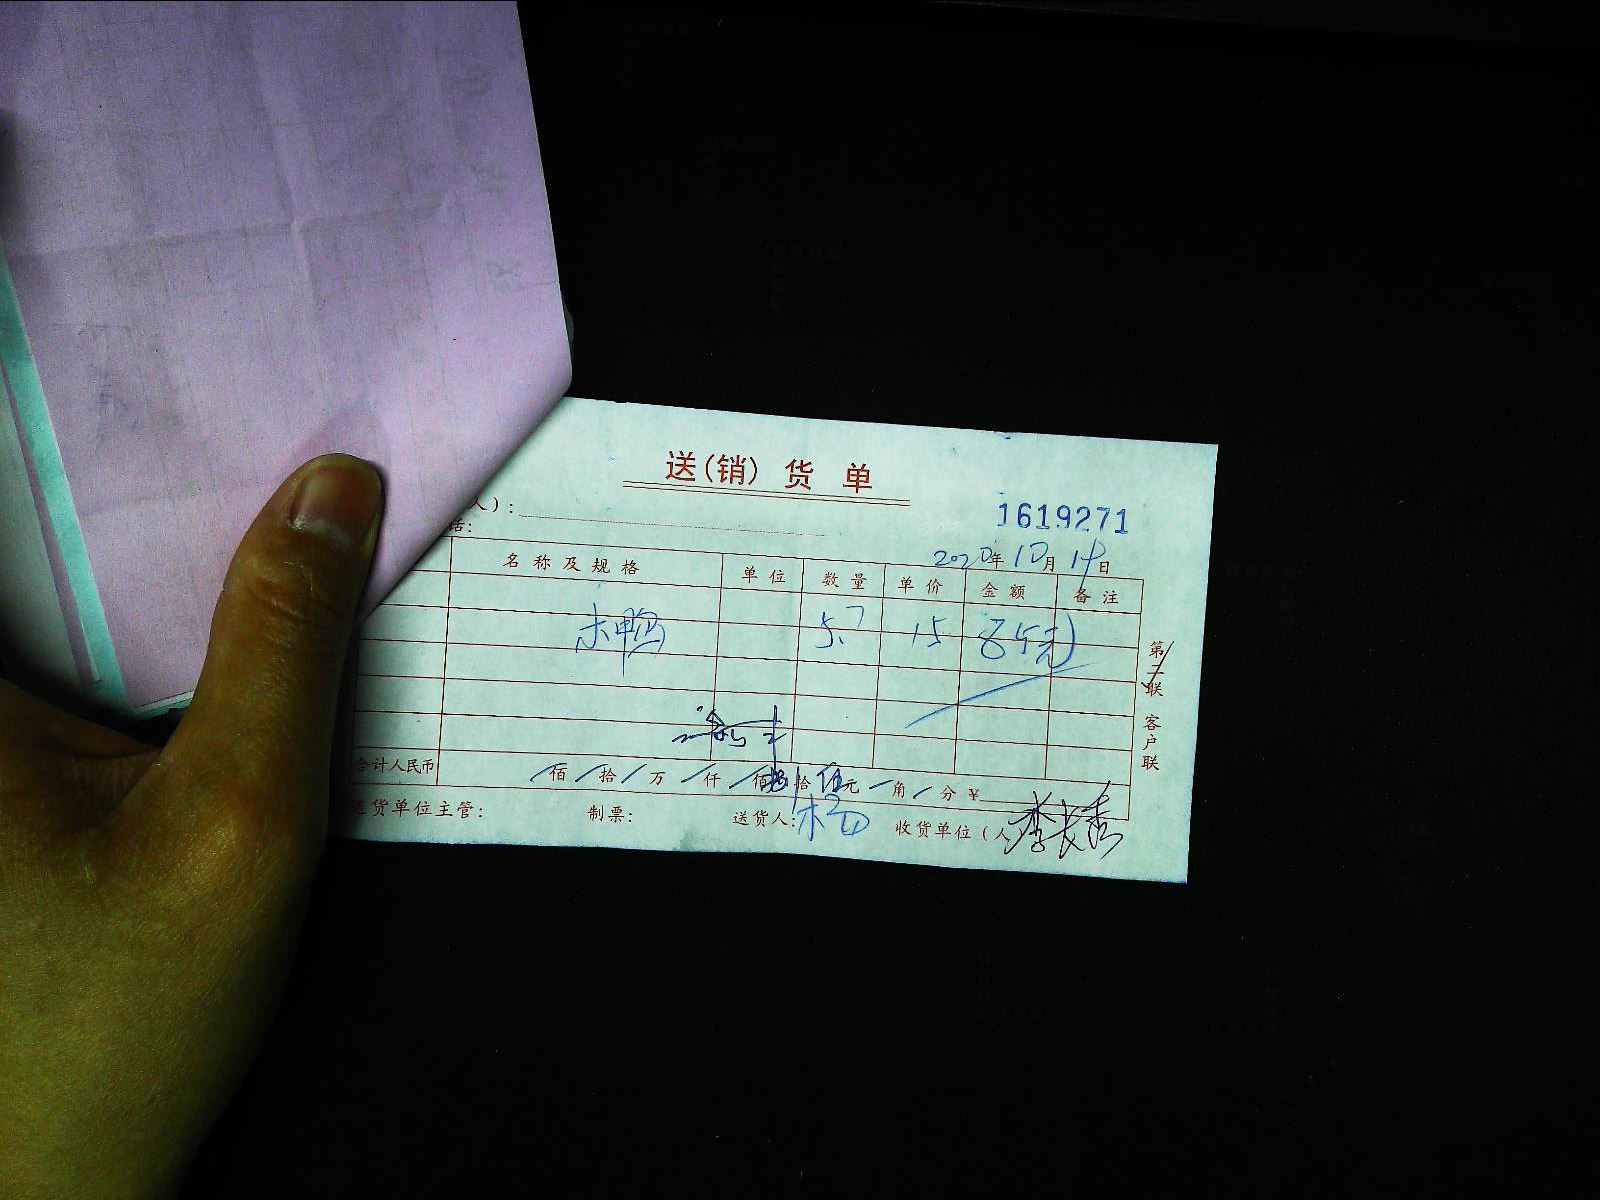 送(销)货单
1619271
人):
话:
2020年10月19日
名称及规格 单位 数量 单价 金额 备注
水鸭 5.7 15 85元
第二联 客户联
合计人民币 佰 拾 万 仟 佰 捌拾伍元 角 分 ¥
送货单位主管: 制票: 送货人:杨 收货单位(人 李长秀